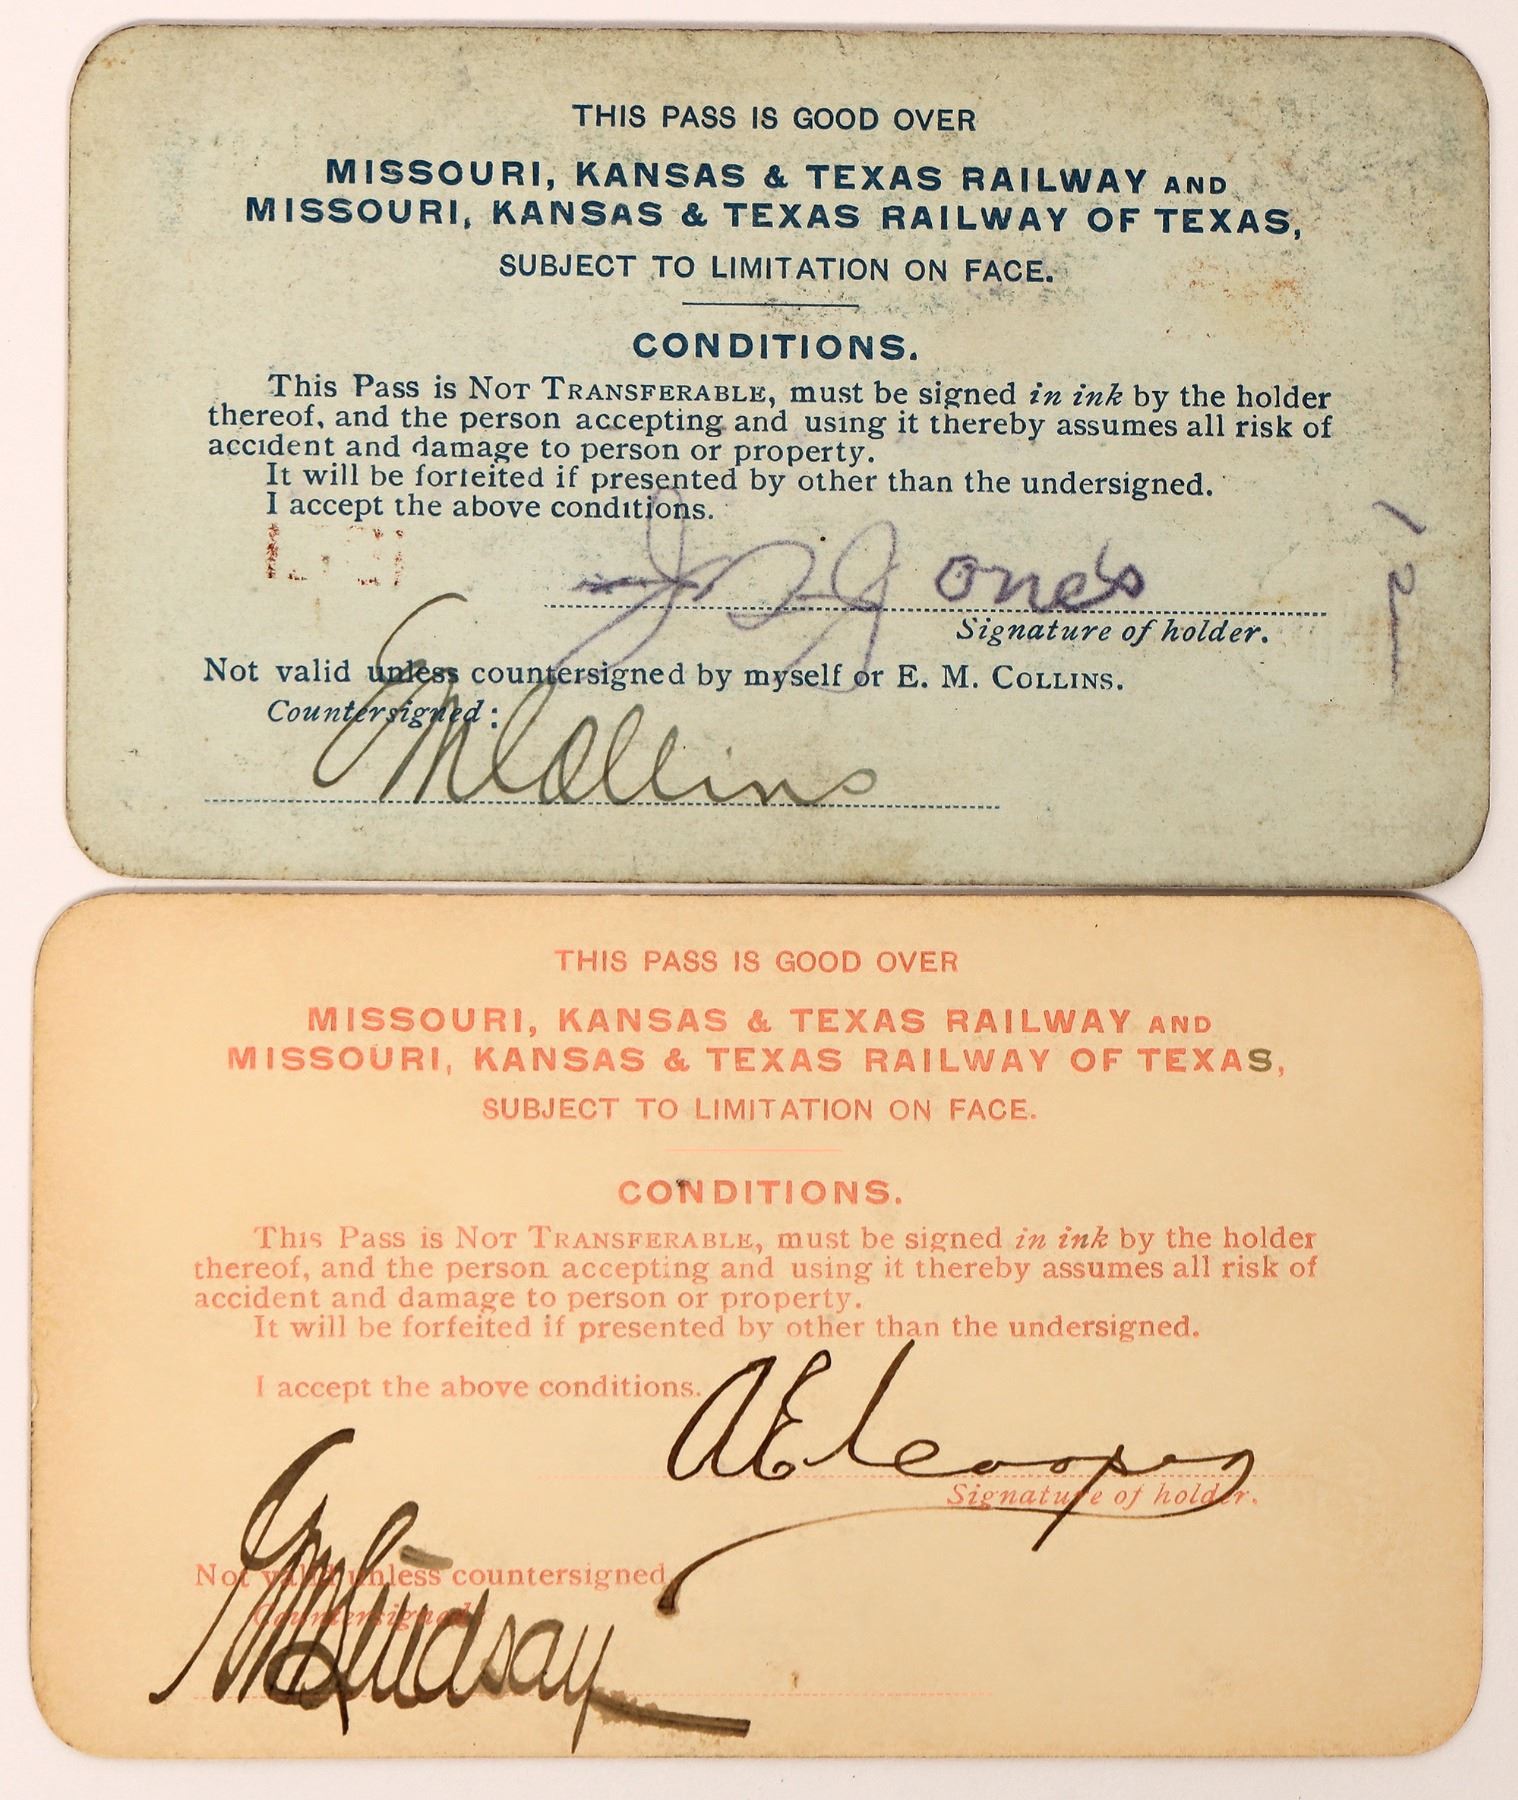 THIS PASS IS GOOD OVER
MISSOURI, KANSAS & TEXAS RAILWAY AND
MISSOURI, KANSAS & TEXAS RAILWAY OF TEXAS,
SUBJECT TO LIMITATION ON FACE.
CONDITIONS.
This Pass is NOT TRANSFERABLE, must be signed in ink by the holder
thereof, and the person accepting and using it thereby assumes all risk of
accident and damage to person or property.
It will be forfeited if presented by other than the undersigned.
I accept the above conditions.
Jones
Signature of holder.
Not valid unless countersigned by myself or E. M. COLLINS.
Countersigned:
E M Collins
THIS PASS IS GOOD OVER
MISSOURI, KANSAS & TEXAS RAILWAY AND
MISSOURI, KANSAS & TEXAS RAILWAY OF TEXAS,
SUBJECT TO LIMITATION ON FACE.
CONDITIONS.
This Pass is NOT TRANSFERABLE, must be signed in ink by the holder
thereof, and the person accepting and using it thereby assumes all risk of
accident and damage to person or property.
It will be forfeited if presented by other than the undersigned.
I accept the above conditions.
A E Cooper
Signature of holder.
Not valid unless countersigned
Countersigned:
Lindsay